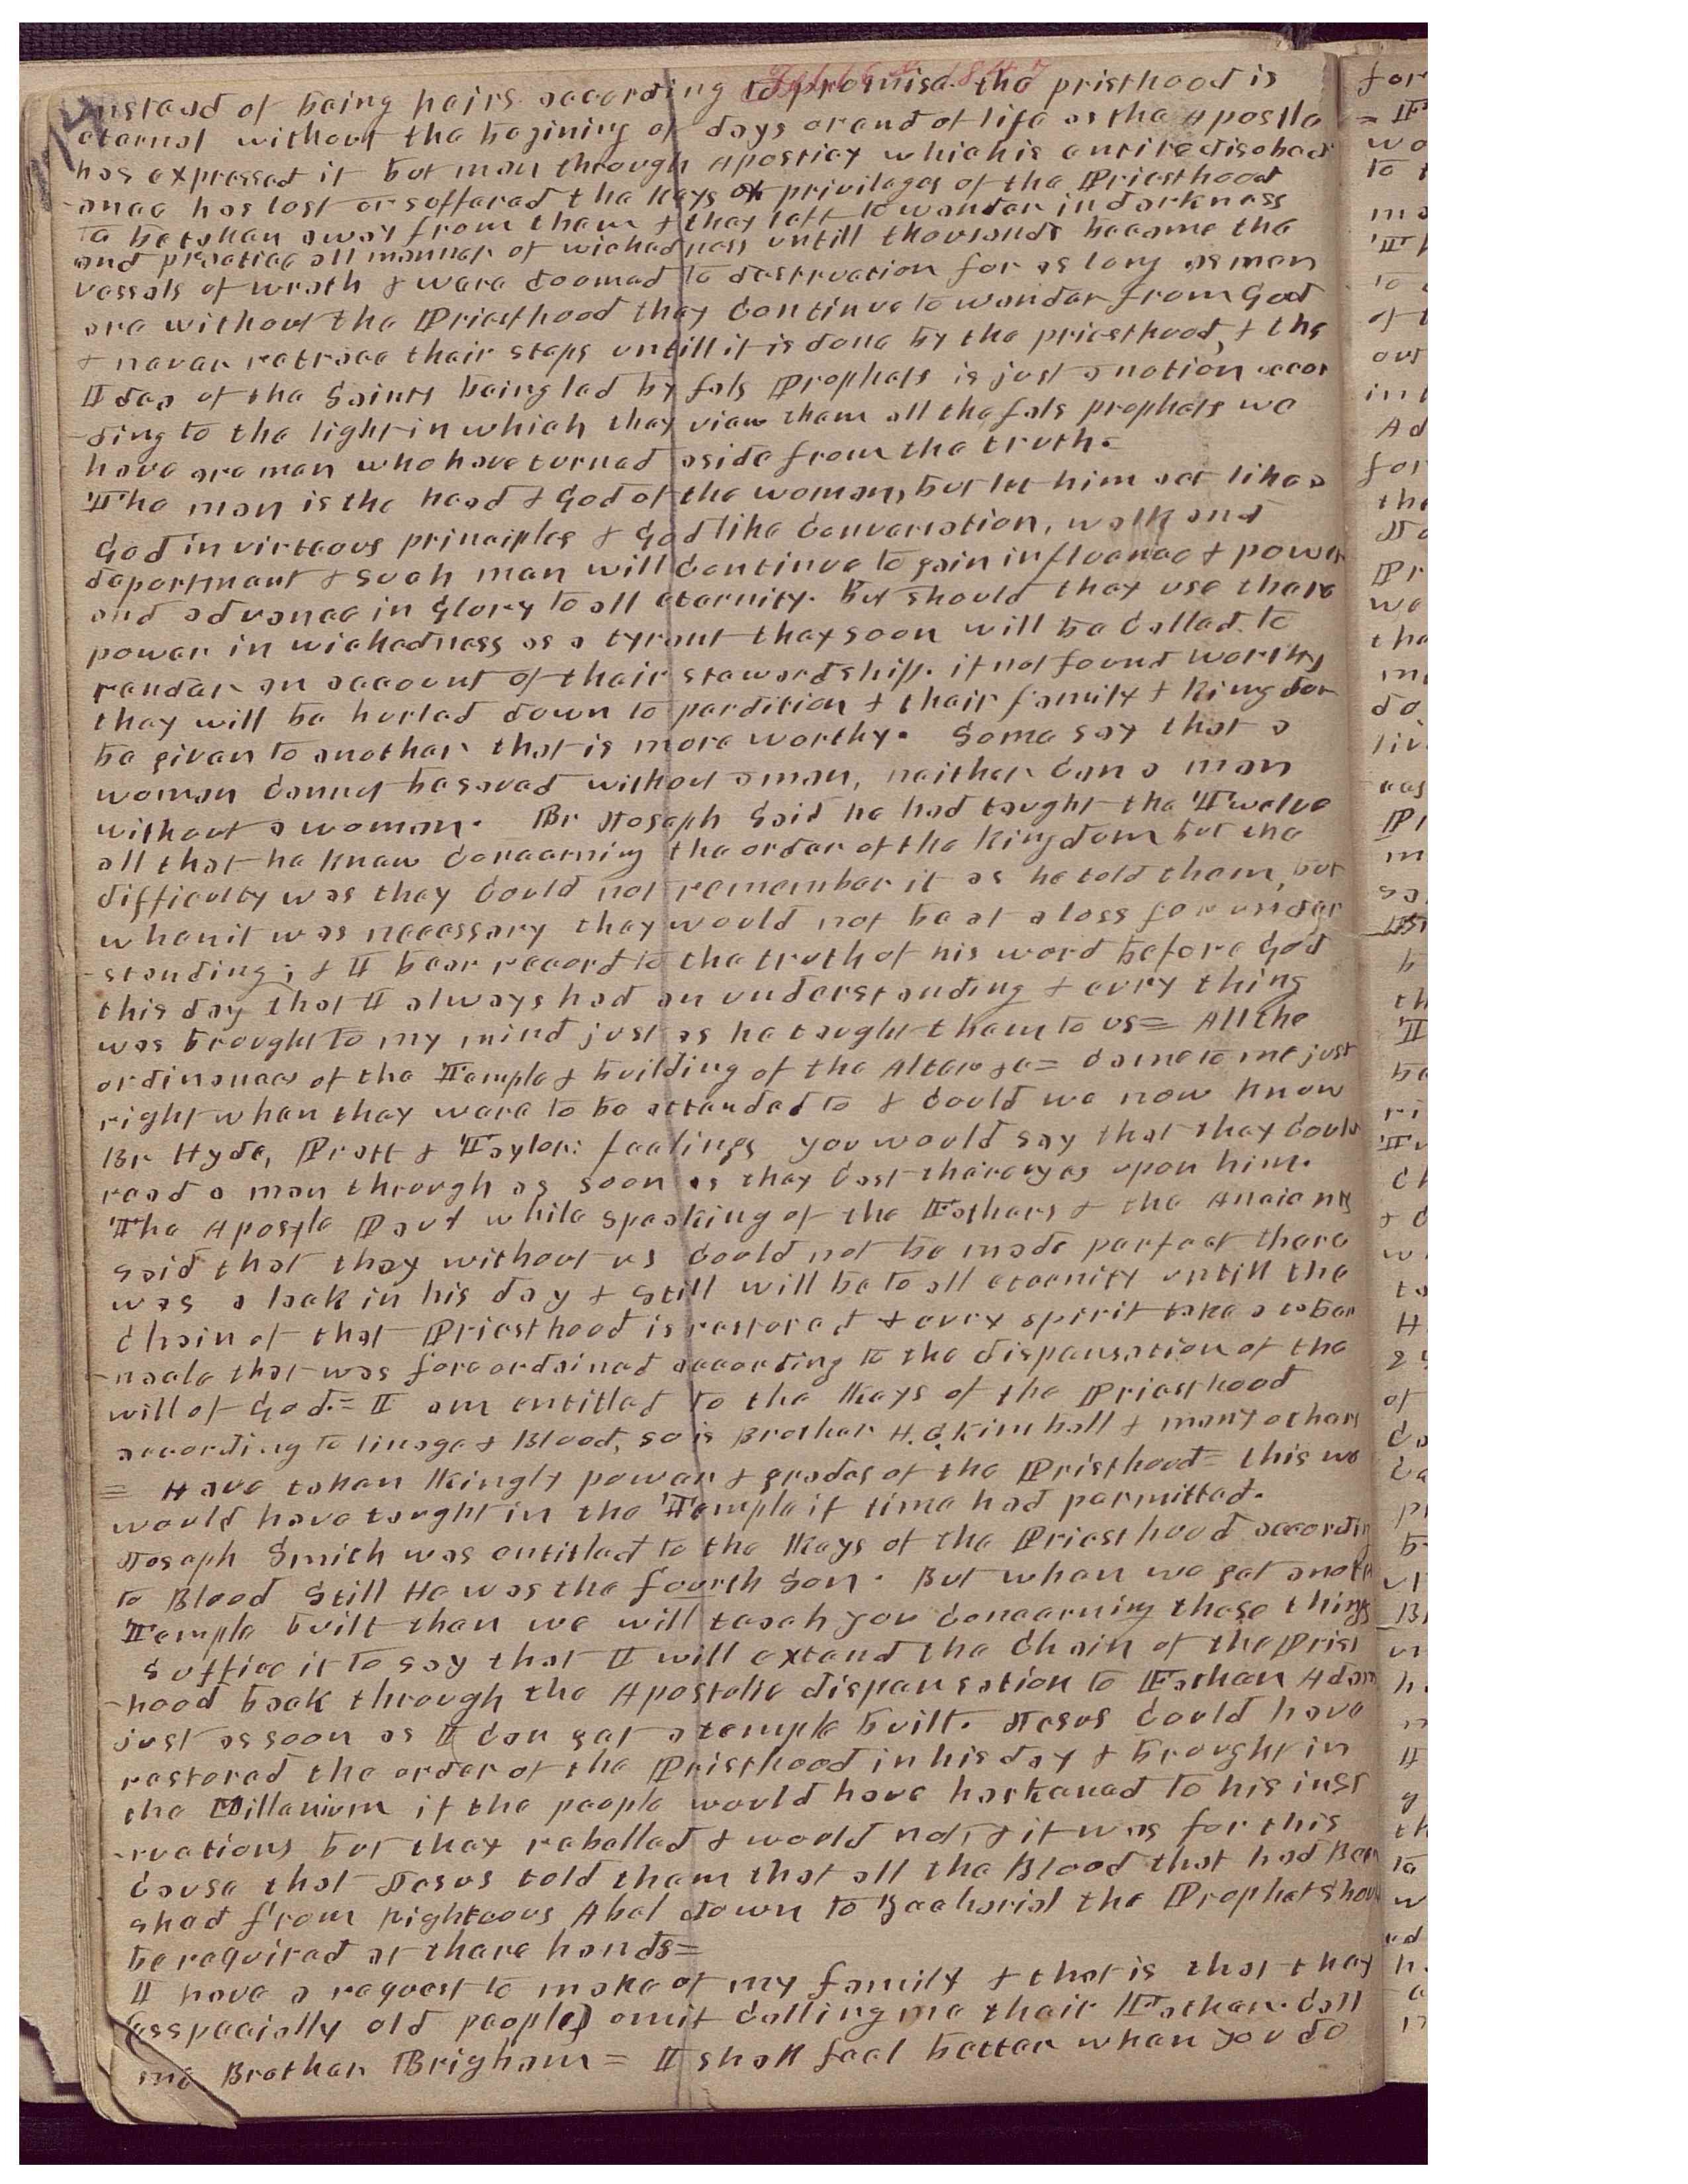 Feb 16th 1847
instead of being heirs according to promise. the pristhood is
eternal without the begining of days or end of life as the Apostle
has expressed it but man through aposticy which is entire disobedi
-ence has lost or suffered the Keys or privileges of the Priesthood
to be taken away from them & they left to wander in darkness
and practice all manner of wickedness untill thousands became the
vessels of wrath & were doomed to destruction for as long as men
are without the Priesthood they continue to wander from God
& never retrace their steps untill it is done by the priesthood, & the
Idea of the Saints being led by fals Prophets is just a notion accor
-ding to the light in which they view them all the fals prophets we
have are men who have turned aside from the truth.
The man is the head & God of the woman, but let him act like a
God in virteous principles & God like conversation, walk and
deportment & such men will continue to gain influence & power
and advance in glory to all eternity. But should they use there
power in wickedness as a tyrant they soon will be called to
render an account of their stewardship. if not found worthy
they will be hurled down to perdition & their family & kingdom
be given to another that is more worthy. Some say that a
woman cannot be saved without a man, neither can a man
without a woman. Br Joseph Said he had taught the Twelve
all that he knew concerning the order of the Kingdom but the
difficulty was they could not remember it as he told them, but
when it was necessary they would not be at a loss for under
-standing; & I bear record to the truth of his word before God
this day that I always had an understanding & evry thing
was brought to my mind just as he taught them to us= All the
ordinances of the Temple & building of the Altew &c= came to me just
right when they were to be attended to & could we now know
Br Hyde, Pratt & Taylor: feelings you would say that they could
read a man through as soon as they cast there eyes upon him.
The Apostle Paul while speaking of the Fathers & the Ancients
said that they without us could not be made perfect there
was a leak in his day & still will be to all eternity untill the
chain of that Priesthood is restored & evry spirit take a taber
-nacle that was foreordained according to the dispensation of the
will of God.= I am entitled to the Keys of the Priesthood
according to linage & Blood, so is Brother H. C. Kimball & many others
= Have taken Kingly power & grades of the Pristhood= this we
would have taught in the Temple if time had permitted.
Joseph Smith was entitled to the Keys of the Priesthood according
to Blood Still He was the fourth Son. But when we get another
Temple built then we will teach you concerning these things
Suffice it to say that I will extend the Chain of the Prist
-hood back through the Apostolic dispensation to Father Adam
just as soon as I can get a temple built. Jesus could have
restored the order of the Pristhood in his day & brought in
the Millenium if the people would have harkened to his inst
-ructions but they rebelled & would not, & it was for this
cause that Jesus told them that all the Blood that had Been
shed from righteous Abel down to Zachariah the Prophet should
be required at there hands=
I have a request to make of my family & that is that they
(esspecially old people) omit calling me their Father. call
me Brother Brigham= I shall feel better when you do